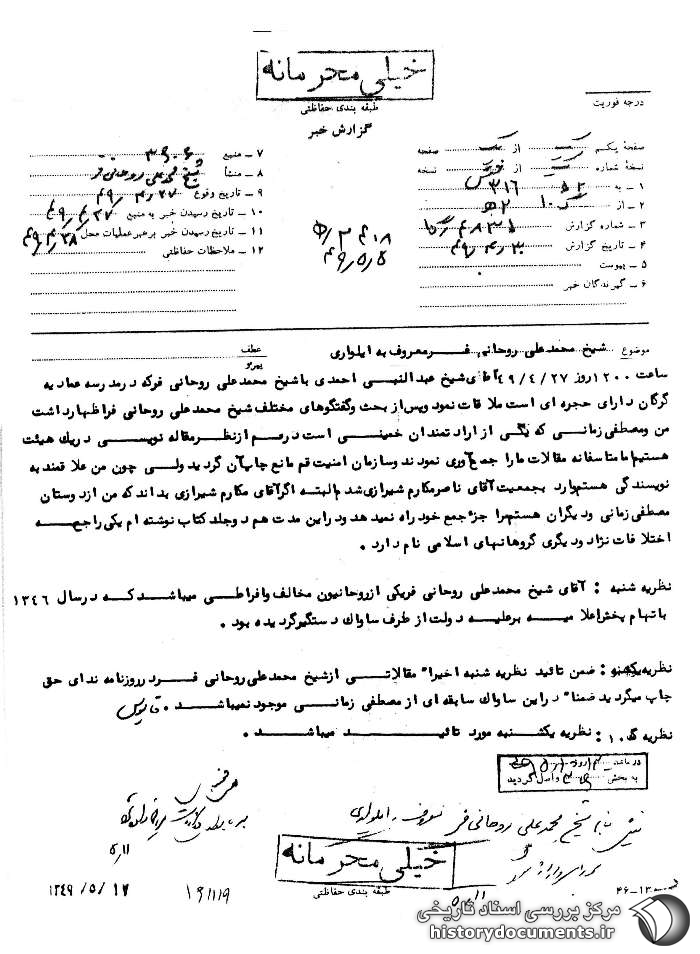 خیلی محرمانه
طبقه بندی حفاظتی
گزارش خبر
درجه فوریت
صفحه یکم از یک صفحه
نسخهٔ شماره از نسخه
۱ ـ به ۳۱۶
۲ ـ از ۲ ه‍ ۱۰
۳ ـ شماره گزارش
۴ ـ تاریخ گزارش ۴۹/۴/۳۰
۵ ـ پیوست
۶ ـ گیرندگان خبر
۷ ـ منبع ۳۶۰۶
۸ ـ منشأ شیخ محمدعلی روحانی فر
۹ ـ تاریخ وقوع ۴۹/۴/۲۷
۱۰ ـ تاریخ رسیدن خبر به منبع ۴۹/۴/۲۷
۱۱ ـ تاریخ رسیدن خبر برهبر عملیات محل ۴۹/۴/۲۸
۱۲ ـ ملاحظات حفاظتی
۴۹/۵/۵
موضوع شیخ محمدعلی روحانی فر معروف به ایلواری
عطف
پیرو
ساعت ۱۲۰۰ روز ۴۹/۴/۲۷ آقای شیخ عبدالنبی احمدی با شیخ محمدعلی روحانی فر که در مدرسه عمادیه
گرگان دارای حجره ای است ملاقات نمود و پس از بحث و گفتگوهای مختلف شیخ محمدعلی روحانی فر اظهار داشت
من و مصطفی زمانی که یکی از ارادتمندان خمینی است در قم از نظر مقاله نویسی در یک هیئت
هستیم اما متاسفانه مقالات ما را جمع آوری نمودند و سازمان امنیت قم مانع چاپ آن گردید ولی چون من علاقمند به
نویسندگی هستم وارد بجمعیت آقای ناصر مکارم شیرازی شدم البته اگر آقای مکارم شیرازی بداند که من از دوستان
مصطفی زمانی و دیگران هستم مرا جزء جمع خود راه نمیدهد و در این مدت هم دو جلد کتاب نوشته ام یکی راجع به
اختلافات نژاد و دیگری گروهانهای اسلامی نام دارد .
نظریه شنبه : آقای شیخ محمدعلی روحانی فر یکی از روحانیون مخالف و افراطی میباشد که در سال ۱۳۴۶
باتهام پخش اعلامیه برعلیه دولت از طرف ساواک دستگیر گردیده بود .
نظریه یکشنبه : ضمن تائید نظریه شنبه اخیراً مقالاتی از شیخ محمدعلی روحانی فر در روزنامه ندای حق
چاپ میگردید ضمناً در این ساواک سابقه ای از مصطفی زمانی موجود نمیباشد .
نظریه ۱۰ : نظریه یکشنبه مورد تائید میباشد .
در ساعت روز
به بخش واصل گردید
شیخ محمدعلی روحانی فر معروف به ایلواری
خیلی محرمانه
طبقه بندی حفاظتی
۱۳۴۹/۵/۱۷
۱۹/۱/۱۹
۵/۱۱
مرکز بررسی اسناد تاریخی
historydocuments.ir